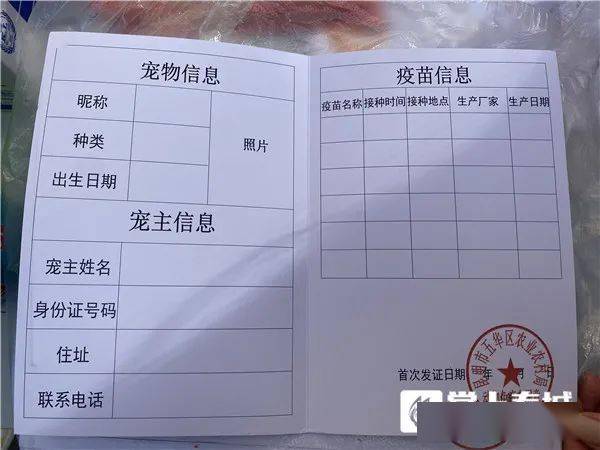 宠物信息
昵称
种类
出生日期
照片
宠主信息
宠主姓名
身份证号码
住址
联系电话
疫苗信息
疫苗名称 接种时间 接种地点 生产厂家 生产日期
首次发证日期 年 月 日
昆明市五华区农业农村局
掌上春城